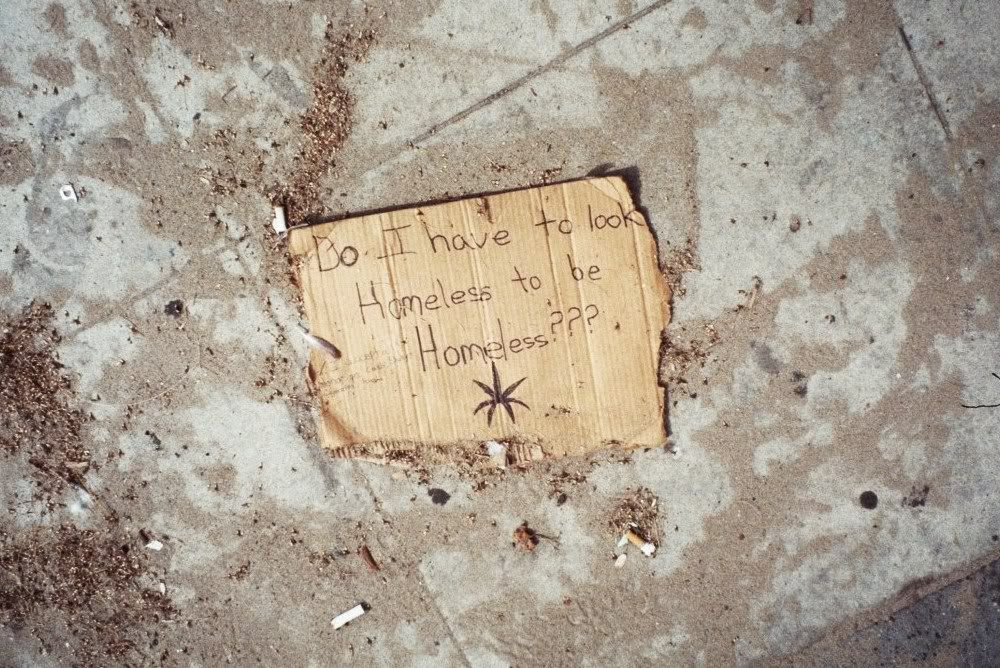 Do I have to look
Homeless to be
Homeless???